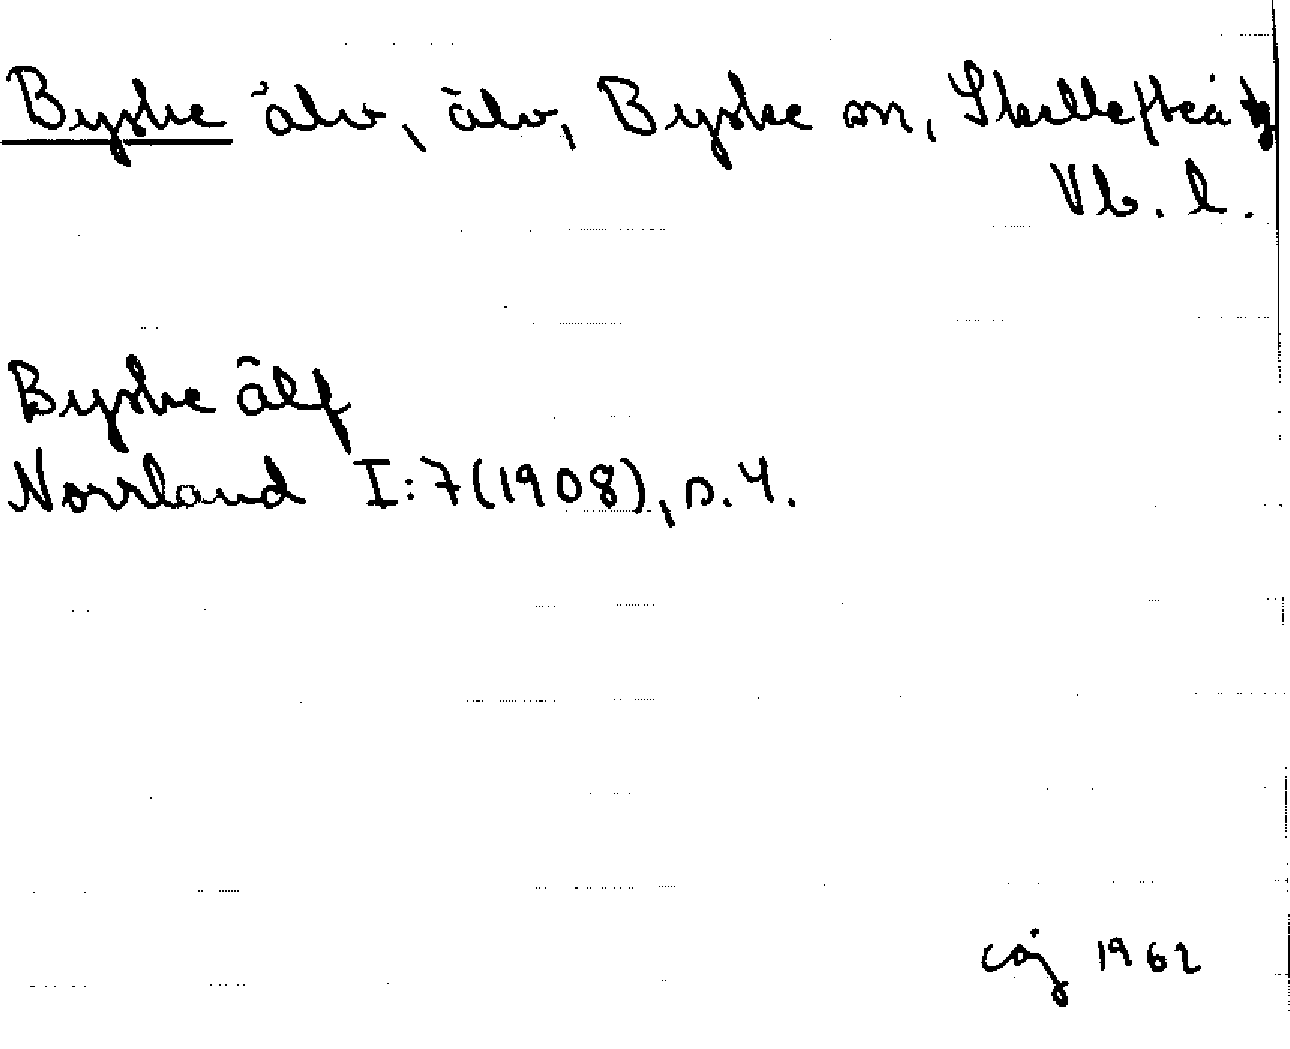 Byske älv, älv, Byske sn, Skellefteå tg
Vb. l.
Byske älf
Norrland I:7(1908), s. 4.
cåj 1962